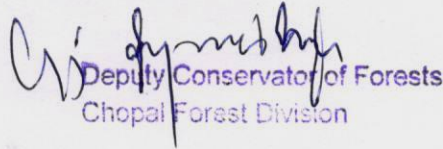 Deputy Conservator of Forests
Chopal Forest Division